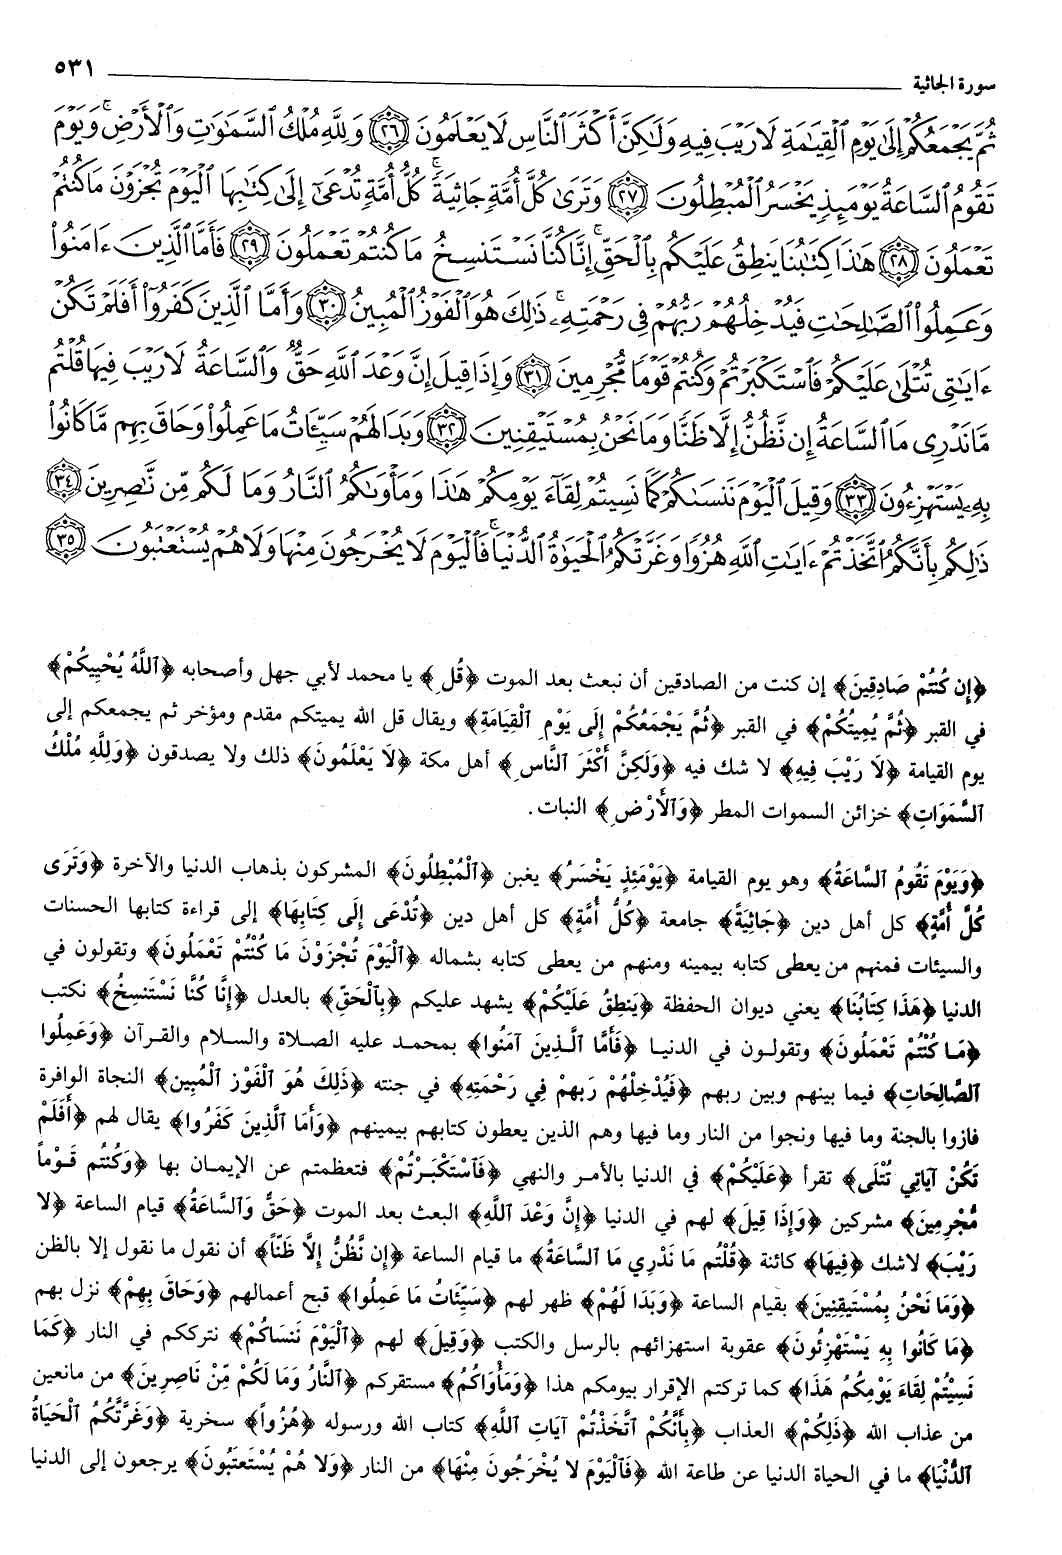 سورة الجاثية ٥٣١
ثُمَّ يَجْمَعُكُمْ إِلَىٰ يَوْمِ ٱلْقِيَٰمَةِ لَا رَيْبَ فِيهِ وَلَٰكِنَّ أَكْثَرَ ٱلنَّاسِ لَا يَعْلَمُونَ ﴿٢٦﴾ وَلِلَّهِ مُلْكُ ٱلسَّمَٰوَٰتِ وَٱلْأَرْضِ ۚ وَيَوْمَ
تَقُومُ ٱلسَّاعَةُ يَوْمَئِذٍ يَخْسَرُ ٱلْمُبْطِلُونَ ﴿٢٧﴾ وَتَرَىٰ كُلَّ أُمَّةٍ جَاثِيَةً ۚ كُلُّ أُمَّةٍ تُدْعَىٰٓ إِلَىٰ كِتَٰبِهَا ٱلْيَوْمَ تُجْزَوْنَ مَا كُنتُمْ
تَعْمَلُونَ ﴿٢٨﴾ هَٰذَا كِتَٰبُنَا يَنطِقُ عَلَيْكُم بِٱلْحَقِّ ۚ إِنَّا كُنَّا نَسْتَنسِخُ مَا كُنتُمْ تَعْمَلُونَ ﴿٢٩﴾ فَأَمَّا ٱلَّذِينَ ءَامَنُوا۟
وَعَمِلُوا۟ ٱلصَّٰلِحَٰتِ فَيُدْخِلُهُمْ رَبُّهُمْ فِى رَحْمَتِهِۦ ۚ ذَٰلِكَ هُوَ ٱلْفَوْزُ ٱلْمُبِينُ ﴿٣٠﴾ وَأَمَّا ٱلَّذِينَ كَفَرُوٓا۟ أَفَلَمْ تَكُنْ
ءَايَٰتِى تُتْلَىٰ عَلَيْكُمْ فَٱسْتَكْبَرْتُمْ وَكُنتُمْ قَوْمًا مُّجْرِمِينَ ﴿٣١﴾ وَإِذَا قِيلَ إِنَّ وَعْدَ ٱللَّهِ حَقٌّ وَٱلسَّاعَةُ لَا رَيْبَ فِيهَا قُلْتُم
مَّا نَدْرِى مَا ٱلسَّاعَةُ إِن نَّظُنُّ إِلَّا ظَنًّا وَمَا نَحْنُ بِمُسْتَيْقِنِينَ ﴿٣٢﴾ وَبَدَا لَهُمْ سَيِّـَٔاتُ مَا عَمِلُوا۟ وَحَاقَ بِهِم مَّا كَانُوا۟
بِهِۦ يَسْتَهْزِءُونَ ﴿٣٣﴾ وَقِيلَ ٱلْيَوْمَ نَنسَىٰكُمْ كَمَا نَسِيتُمْ لِقَآءَ يَوْمِكُمْ هَٰذَا وَمَأْوَىٰكُمُ ٱلنَّارُ وَمَا لَكُم مِّن نَّٰصِرِينَ ﴿٣٤﴾
ذَٰلِكُم بِأَنَّكُمُ ٱتَّخَذْتُمْ ءَايَٰتِ ٱللَّهِ هُزُوًا وَغَرَّتْكُمُ ٱلْحَيَوٰةُ ٱلدُّنْيَا ۚ فَٱلْيَوْمَ لَا يُخْرَجُونَ مِنْهَا وَلَا هُمْ يُسْتَعْتَبُونَ ﴿٣٥﴾
﴿إِن كُنْتُمْ صَادِقِينَ﴾ إن كنت من الصادقين أن نبعث بعد الموت ﴿قُلِ﴾ يا محمد لأبي جهل وأصحابه ﴿ٱللَّهُ يُحْيِيكُمْ﴾
في القبر ﴿ثُمَّ يُمِيتُكُمْ﴾ في القبر ﴿ثُمَّ يَجْمَعُكُمْ إِلَى يَوْمِ ٱلْقِيَامَةِ﴾ ويقال قل الله يميتكم مقدم ومؤخر ثم يجمعكم إلى
يوم القيامة ﴿لَا رَيْبَ فِيهِ﴾ لا شك فيه ﴿وَلَكِنَّ أَكْثَرَ ٱلنَّاسِ﴾ أهل مكة ﴿لَا يَعْلَمُونَ﴾ ذلك ولا يصدقون ﴿وَلِلَّهِ مُلْكُ
ٱلسَّمَوَاتِ﴾ خزائن السموات المطر ﴿وَٱلْأَرْضِ﴾ النبات.
﴿وَيَوْمَ تَقُومُ ٱلسَّاعَةُ﴾ وهو يوم القيامة ﴿يَوْمَئِذٍ يَخْسَرُ﴾ يغبن ﴿ٱلْمُبْطِلُونَ﴾ المشركون بذهاب الدنيا والآخرة ﴿وَتَرَى
كُلَّ أُمَّةٍ﴾ كل أهل دين ﴿جَاثِيَةً﴾ جامعة ﴿كُلُّ أُمَّةٍ﴾ كل أهل دين ﴿تُدْعَى إِلَى كِتَابِهَا﴾ إلى قراءة كتابها الحسنات
والسيئات فمنهم من يعطى كتابه بيمينه ومنهم من يعطى كتابه بشماله ﴿ٱلْيَوْمَ تُجْزَوْنَ مَا كُنْتُمْ تَعْمَلُونَ﴾ وتقولون في
الدنيا ﴿هَذَا كِتَابُنَا﴾ يعني ديوان الحفظة ﴿يَنطِقُ عَلَيْكُمْ﴾ يشهد عليكم ﴿بِٱلْحَقِّ﴾ بالعدل ﴿إِنَّا كُنَّا نَسْتَنسِخُ﴾ نكتب
﴿مَا كُنْتُمْ تَعْمَلُونَ﴾ وتقولون في الدنيا ﴿فَأَمَّا ٱلَّذِينَ آمَنُوا﴾ بمحمد عليه الصلاة والسلام والقرآن ﴿وَعَمِلُوا
ٱلصَّالِحَاتِ﴾ فيما بينهم وبين ربهم ﴿فَيُدْخِلُهُمْ رَبهمْ فِي رَحْمَتِهِ﴾ في جنته ﴿ذَلِكَ هُوَ ٱلْفَوْزُ ٱلْمُبِين﴾ النجاة الوافرة
فازوا بالجنة وما فيها ونجوا من النار وما فيها وهم الذين يعطون كتابهم بيمينهم ﴿وَأَمَا ٱلَّذِينَ كَفَرُوا﴾ يقال لهم ﴿أَفَلَمْ
تَكُنْ آيَاتِي تُتْلَى﴾ تقرأ ﴿عَلَيْكُمْ﴾ في الدنيا بالأمر والنهي ﴿فَٱسْتَكْبَرْتُمْ﴾ فتعظمتم عن الإيمان بها ﴿وَكُنْتُم قَوْماً
مُّجْرِمِينَ﴾ مشركين ﴿وَإِذَا قِيلَ﴾ لهم في الدنيا ﴿إِنَّ وَعْدَ ٱللَّهِ﴾ البعث بعد الموت ﴿حَقٌّ وَٱلسَّاعَةُ﴾ قيام الساعة ﴿لَا
رَيْبَ﴾ لاشك ﴿فِيهَا﴾ كائنة ﴿قُلْتُم مَا نَدْرِي مَا ٱلسَّاعَةُ﴾ ما قيام الساعة ﴿إِن نَّظُنُّ إِلَّا ظَنّاً﴾ أن نقول ما نقول إلا بالظن
﴿وَمَا نَحْنُ بِمُسْتَيْقِنِينَ﴾ بقيام الساعة ﴿وَبَدَا لَهُمْ﴾ ظهر لهم ﴿سَيِّئَاتُ مَا عَمِلُوا﴾ قبح أعمالهم ﴿وَحَاقَ بِهِمْ﴾ نزل بهم
﴿مَا كَانُوا بِهِ يَسْتَهْزِئُونَ﴾ عقوبة استهزائهم بالرسل والكتب ﴿وَقِيلَ﴾ لهم ﴿ٱلْيَوْمَ نَنسَاكُمْ﴾ نترككم في النار ﴿كَمَا
نَسِيْتُمْ لِقَاءَ يَوْمِكُمْ هَذَا﴾ كما تركتم الإقرار بيومكم هذا ﴿وَمَأْوَاكُمُ﴾ مستقركم ﴿ٱلنَّارُ وَمَا لَكُمْ مِّنْ نَاصِرِينَ﴾ من مانعين
من عذاب الله ﴿ذَلِكُمْ﴾ العذاب ﴿بِأَنَّكُمْ ٱتَّخَذْتُمْ آيَاتِ ٱللَّهِ﴾ كتاب الله ورسوله ﴿هُزُواً﴾ سخرية ﴿وَغَرَّتْكُمُ ٱلْحَيَاةُ
ٱلدُّنْيَا﴾ ما في الحياة الدنيا عن طاعة الله ﴿فَٱلْيَوْمَ لَا يُخْرَجُونَ مِنْهَا﴾ من النار ﴿وَلَا هُمْ يُسْتَعْتَبُونَ﴾ يرجعون إلى الدنيا